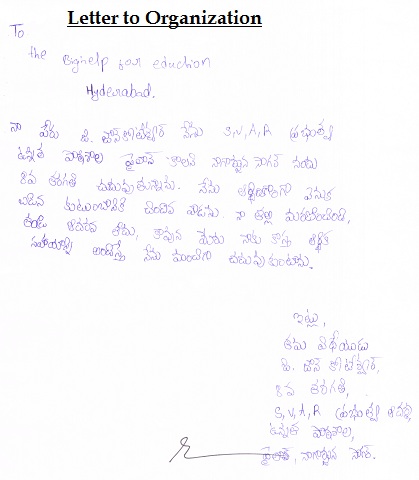 Letter to Organization
To
the Bighelp for eduction
Hyderabad.
నా పేరు జి. నేను S,V,A,R ప్రభుత్వ
ఉన్నత పాఠశాల పైలాన్ కాలనీ నాగార్జున సాగర్ నందు
8వ తరగతి చదువుతున్నాను. నేను ఆర్థికంగా వెనుక
బడిన కుటుంబానికి చెందిన వాడను. నా తల్లి మరణించింది,
తండ్రి లేదు, కావున మీరు నాకు కొస్త ఆర్థిక
సహాయాన్ని అందిస్తే నేను మంచిగా చదువుకుంటాను.
ఇట్లు,
తమ విధేయుడు
జి.
8వ తరగతి,
S,V,A,R ప్రభుత్వ
ఉన్నత పాఠశాల,
పైలాన్, నాగార్జున సాగర్.